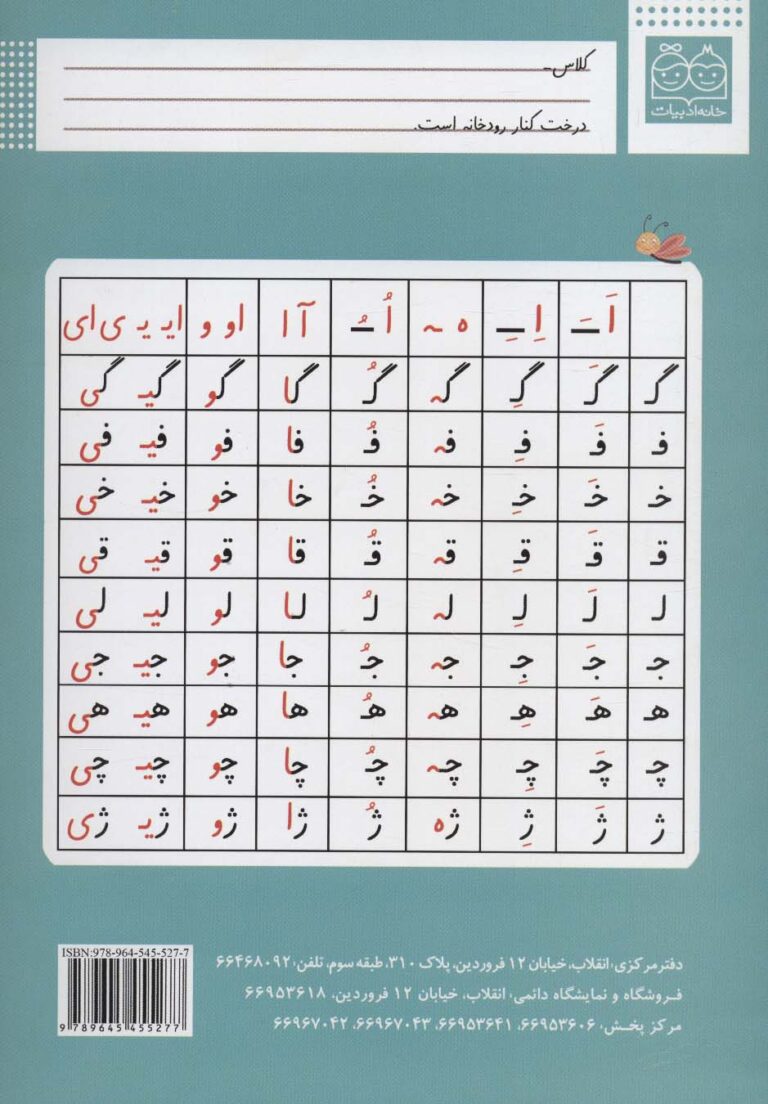 خانه ادبیات
کلاس-
درخت کنار رودخانه است.
اَ ـَ اِ ـِ ه ـه اُ ـُ آ ا او و ایـ یـ ی ای
گـ گَـ گِـ گه گُـ گا گو گیـ گی
فـ فَـ فِـ فه فُـ فا فو فیـ فی
خـ خَـ خِـ خه خُـ خا خو خیـ خی
قـ قَـ قِـ قه قُـ قا قو قیـ قی
لـ لَـ لِـ له لُـ لا لو لیـ لی
جـ جَـ جِـ جه جُـ جا جو جیـ جی
هـ هَـ هِـ هه هُـ ها هو هیـ هی
چـ چَـ چِـ چه چُـ چا چو چیـ چی
ژ ژَ ژِ ژه ژُ ژا ژو ژیـ ژی
دفتر مرکزی: انقلاب، خیابان ۱۲ فروردین، پلاک ۳۱۰، طبقه سوم، تلفن: ۶۶۴۶۸۰۹۲
فروشگاه و نمایشگاه دائمی: انقلاب، خیابان ۱۲ فروردین، ۶۶۹۵۳۶۱۸
مرکز پخش: ۶۶۹۵۳۶۰۶، ۶۶۹۵۳۶۴۱، ۶۶۹۶۷۰۴۳، ۶۶۹۶۷۰۴۲
ISBN:978-964-545-527-7
9 789645 455277